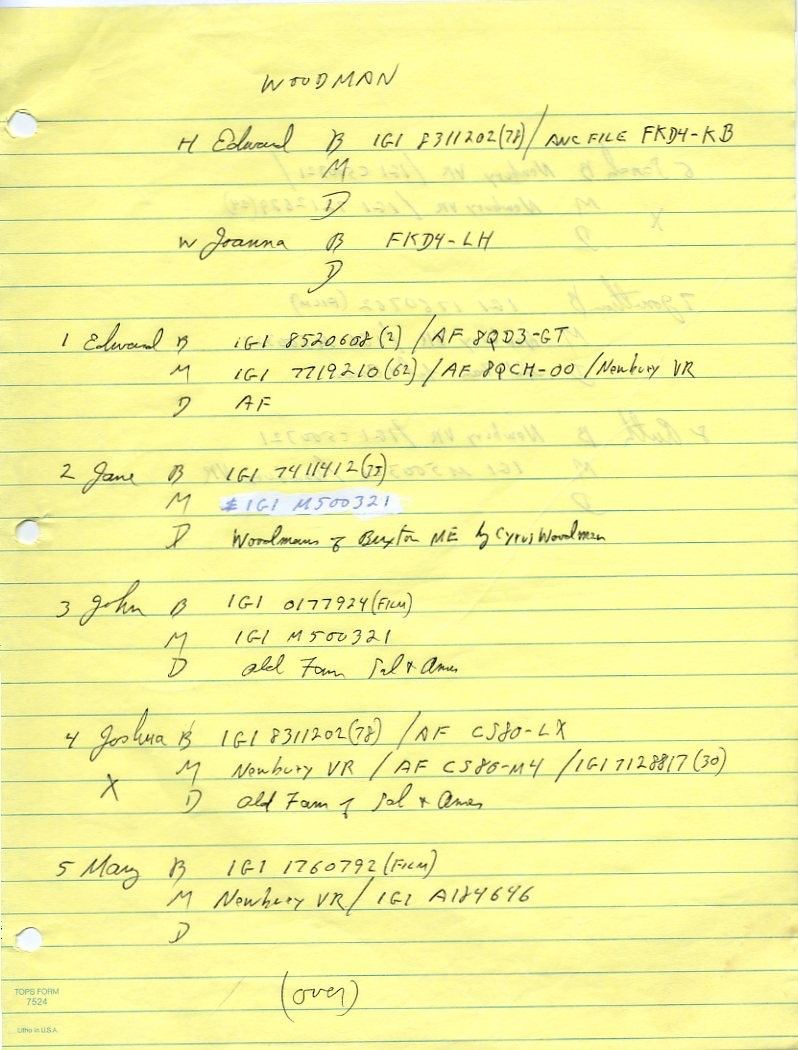 WOODMAN
H Edward B IGI 8311202(78)/ANC FILE FKD4-KB
M
D
W Joanna B FKD4-LH
D
1 Edward B IGI 8520608(2)/AF 8QD3-GT
M IGI 7719210(62)/AF 8QCH-00/Newbury VR
D AF
2 Jane B IGI 7411412(75)
M IGI M500321
D Woodmans of Buxton ME by Cyrus Woodman
3 John B IGI 0177924(FILM)
M IGI M500321
D Old Fam Sal & Ames
4 Joshua B IGI 8311202(78) /AF CS80-LX
X M Newbury VR / AF CS80-M4 /IGI 7128817(30)
D Old Fam of Sal & Ames
5 Mary B IGI 1760792(FILM)
M Newbury VR/ IGI A184646
D
(over)
TOPS FORM
7524
Litho in U.S.A.